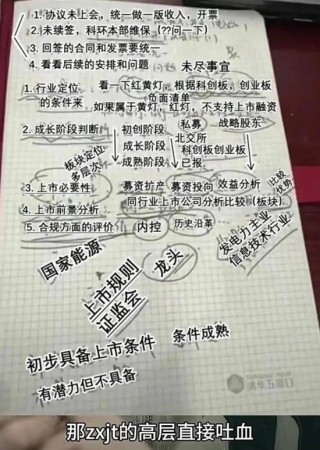 1. 协议未上会，统一做一版收入，开票
2.未续签，科环本部维保（??问一下)
3. 回签的合同和发票要统一
4. 看看后续的安排和问题
未尽事宜
1. 行业定位的条件来
看一下红黄灯，根据科创板，创业板
负面清单
如果属于黄灯，红灯，不支持上市融资
2. 成长阶段判断
初创阶段
成长阶段
成熟阶段
私募
北交所
科创板创业板
已报
战略股东
板块定位
多层次
3. 上市必要性
募资扩产
募资投向
效益分析
比较优势
4. 上市前景分析
同行业上市公司分析比较（板块)
5. 合规方面的评价
内控
历史沿革
发电力主业
信息技术行业
国家能源
上市规则
证监会
龙头
初步具备上市条件
条件成熟
有潜力但不具备
清华五道口
那zxjt的高层直接吐血